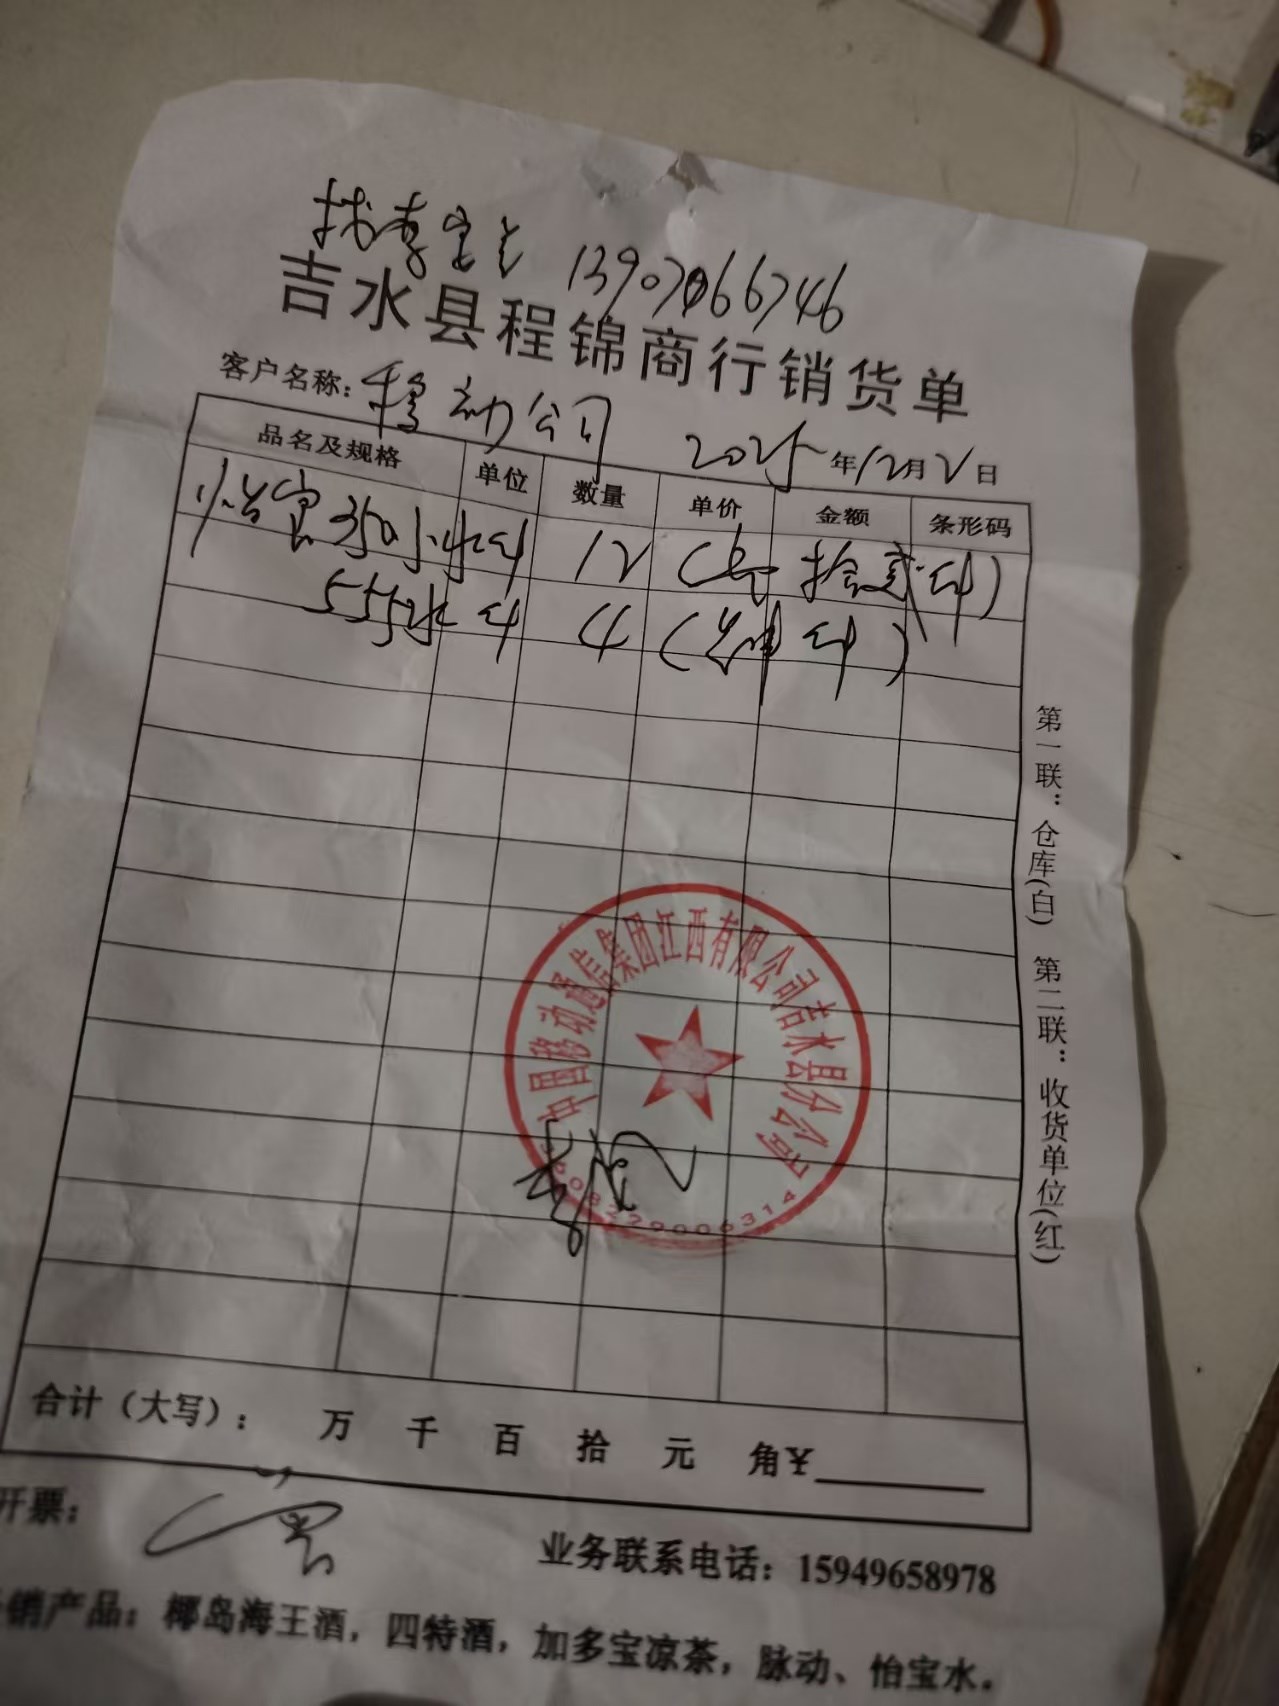 找李宝之 13907066746
吉水县程锦商行销货单
客户名称：移动公司 2025年12月2日
品名及规格 单位 数量 单价 金额 条形码
怡宝350小水 件 12 （壹拾贰件）
555水 件 4 （肆件）
第一联：仓库(白) 第二联：收货单位(红)
中国移动通信集团江西有限公司吉水县分公司
3608229006314
合计（大写）： 万 千 百 拾 元 角￥
开票：
业务联系电话：15949658978
销产品：椰岛海王酒，四特酒，加多宝凉茶，脉动、怡宝水。